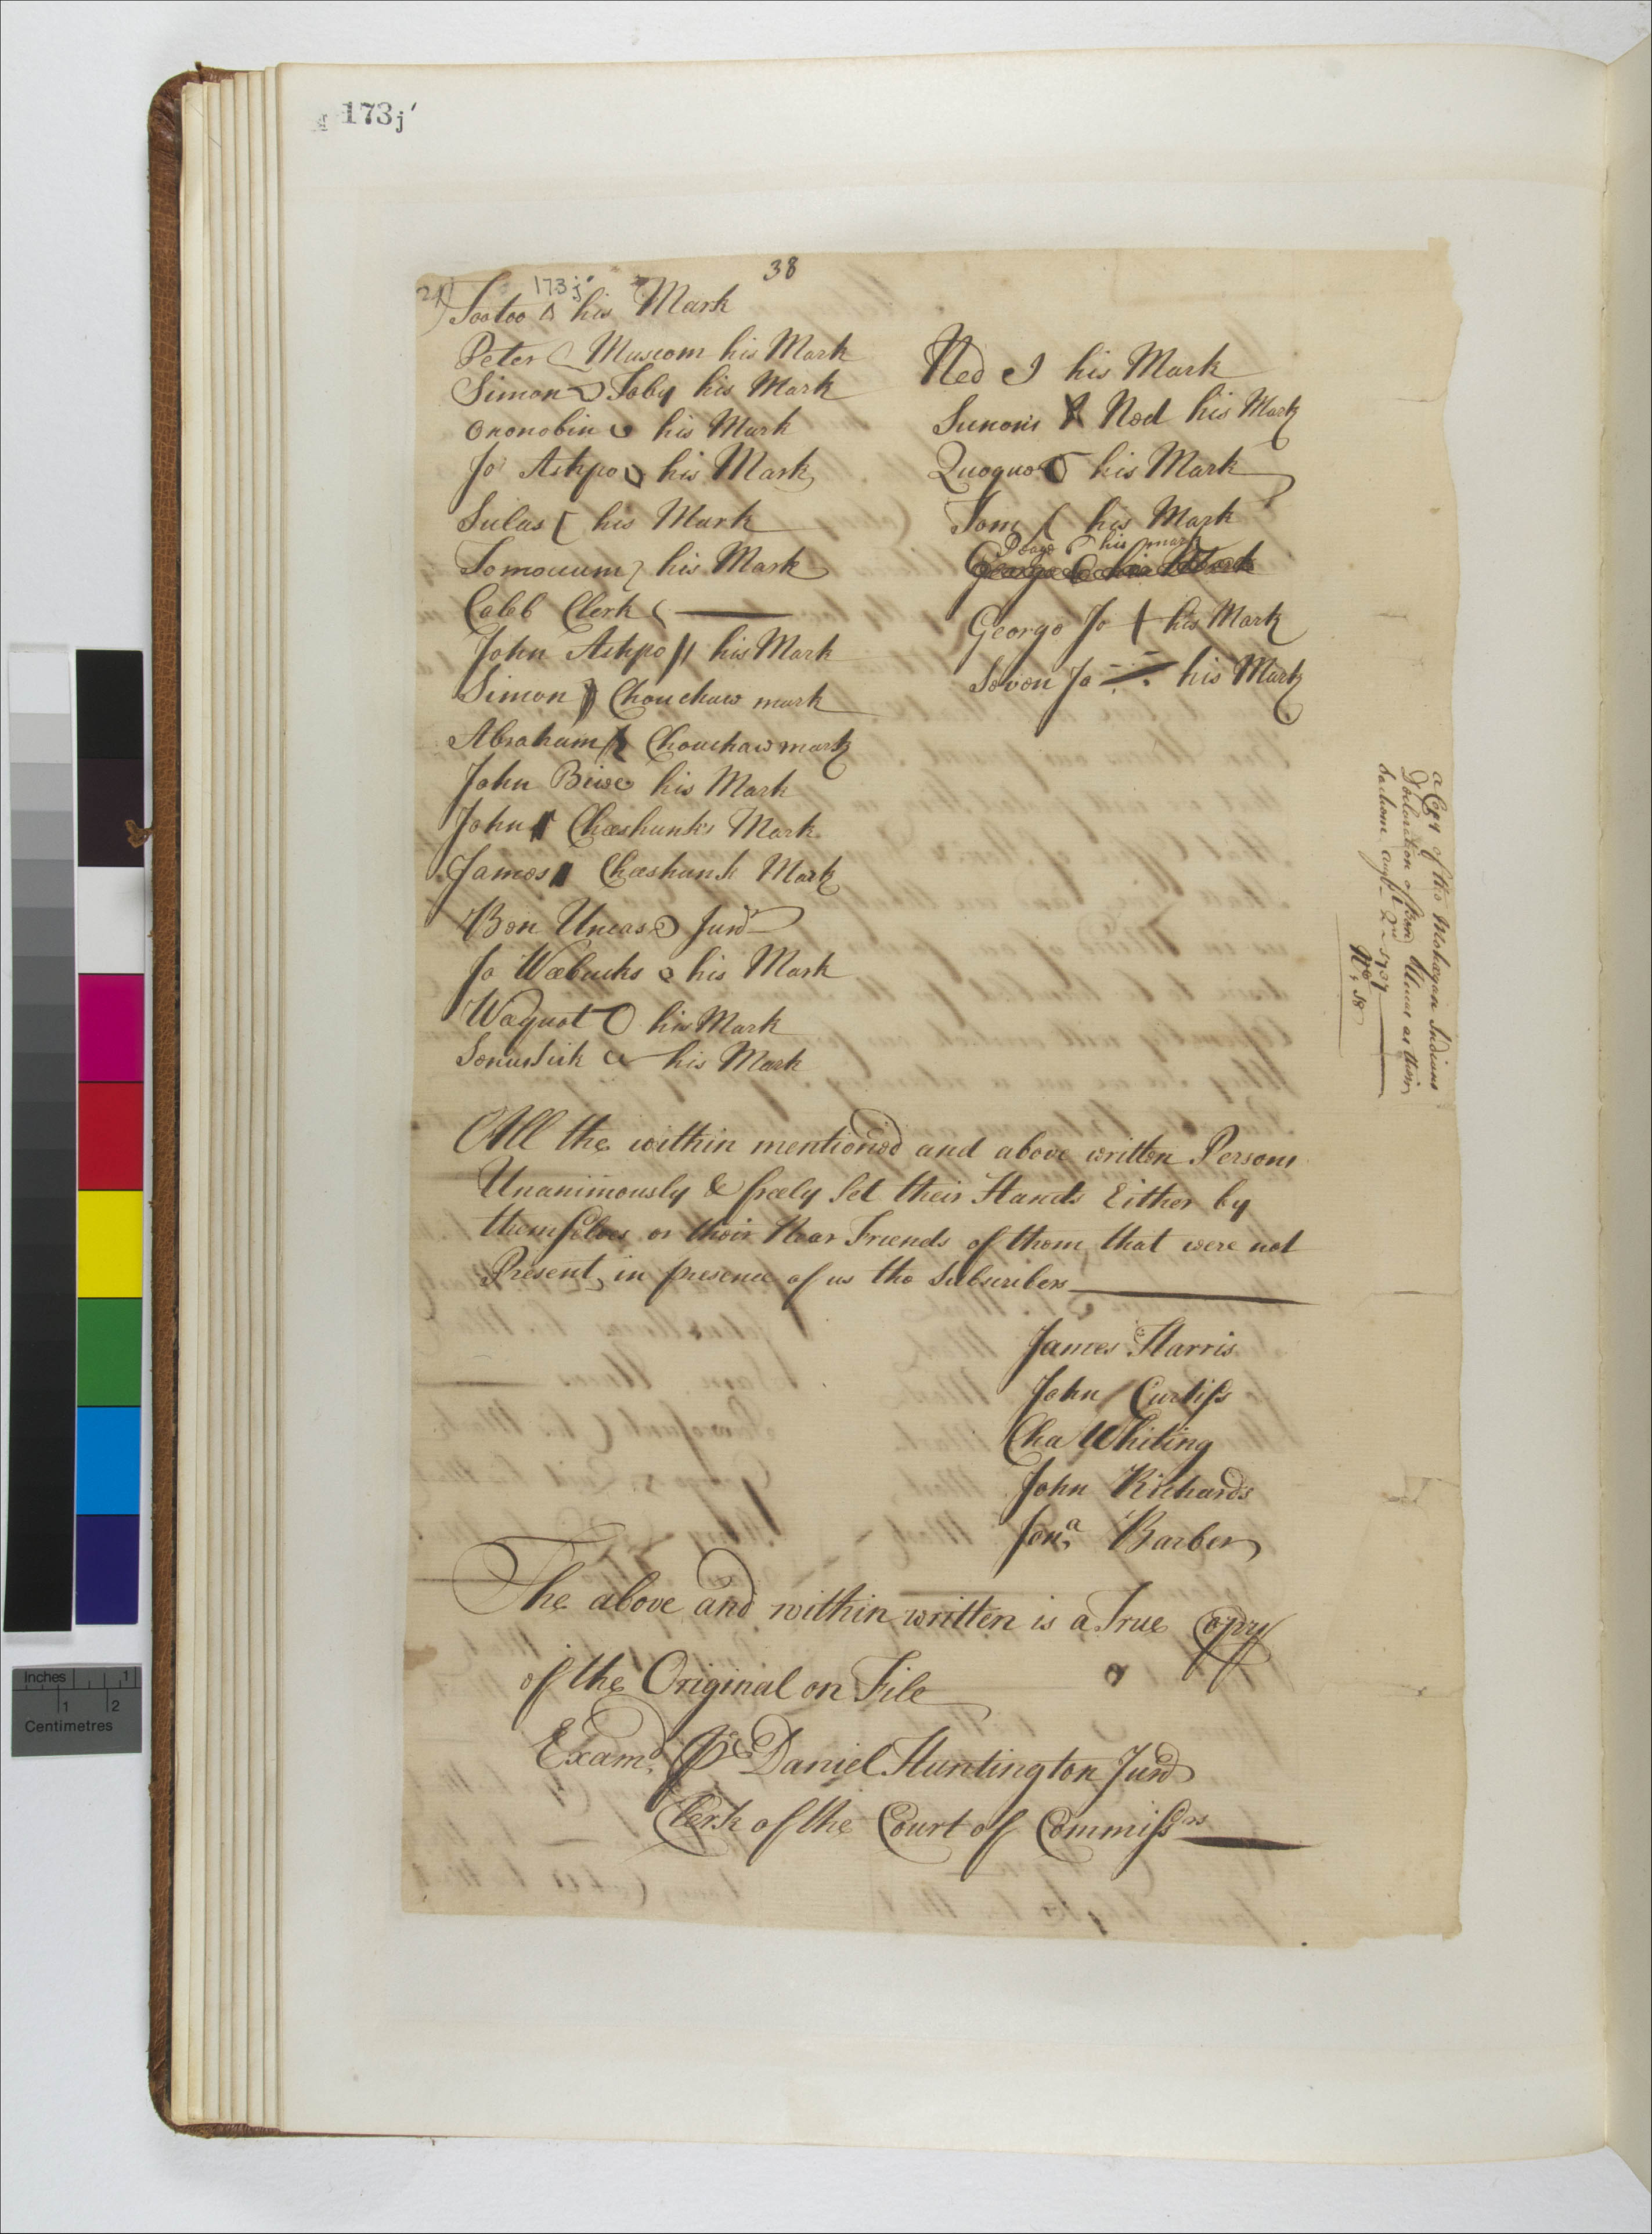 173j'
38
173j.
Tootoo his Mark
Peter Muscom his Mark
Simon Toby his Mark
Ononobin his Mark
Jo Ashpo his Mark
Sulas his Mark
Tomouum his Mark
Caleb Clerk
John Ashpo his Mark
Simon Chouchaw mark
Abraham Chouchaw mark
John his Mark
John Cheeshunks Mark
James Cheeshunk Mark
Ben Uncas Junr
Jo Weebucks his Mark
Wequot his Mark
his Mark
Ned his Mark
Ned his Mark
Quoquo his Mark
Tom his Mark
his mark
George Jo his Mark
Jo his Mark
a Copy of the Mohegan Indians
Declaration of Ben Uncas as their
Sachem
No. 38
All the within mentioned and above written Persons
Unanimously & freely Set their Hands Either by
themselves or their Near Friends of them that were not
Present, in presence of us the Subscribers
James Harris
John Curtiss
Cha Whiting
John Richards
Jona. Barber
The above and within written is a True Copy
of the Original on File
Examd. Pr Daniel Huntington Junr
Clerk of the Court of Commissrs